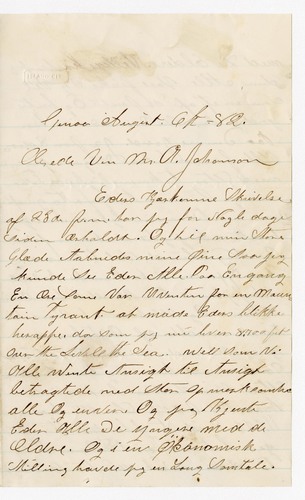 Genoa August. 6th - 82.
Ærede Ven Mr. A. Johanson
Eders Kjærkomne Skrivelse
af 23de har jeg for Nogle dage
siden erholdt. Og til min Store
Glæde mine Øine saa jeg
kunde See Eder Alle Paa En gang
En Ære Som Var for en
tain at møde Eders blikke
heroppe. da som jeg nu lever 8500 fot
over the Sea. Well Som Vi
Alle Ansigt til Ansigt
betragtede med Stor Opmerksomhed
alle Og enhver Og jeg Kjente
Eder Alle De yngere med de
Ældre. Og i en Økonomisk
Stilling havde jeg en Lang Samtale.